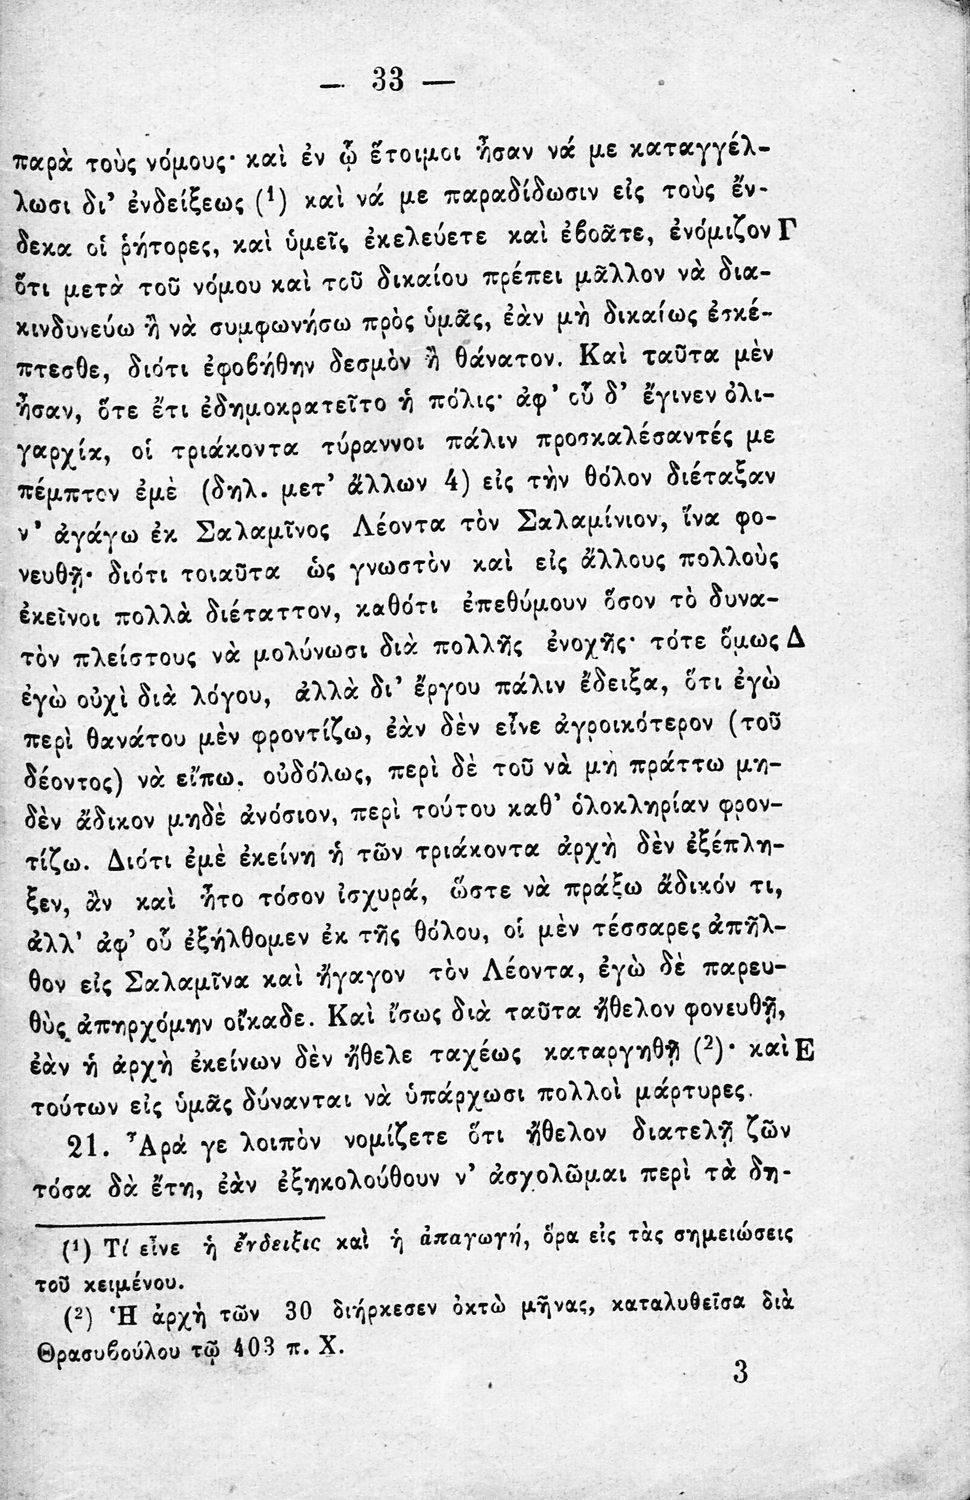 — 33 —
παρὰ τοὺς νόμους· καὶ ἐν ᾧ ἕτοιμοι ἦσαν νά με καταγγέλ-
λωσι δι’ ἐνδείξεως (¹) καὶ νά με παραδίδωσιν εἰς τοὺς ἕν-
δεκα οἱ ῥήτορες, καὶ ὑμεῖς ἐκελεύετε καὶ ἐβοᾶτε, ἐνόμιζον Γ
ὅτι μετὰ τοῦ νόμου καὶ τοῦ δικαίου πρέπει μᾶλλον νὰ δια-
κινδυνεύω ἢ νὰ συμφωνήσω πρὸς ὑμᾶς, ἐὰν μὴ δικαίως ἐσκέ-
πτεσθε, διότι ἐφοβήθην δεσμὸν ἢ θάνατον. Καὶ ταῦτα μὲν
ἦσαν, ὅτε ἔτι ἐδημοκρατεῖτο ἡ πόλις· ἀφ’ οὗ δ’ ἔγινεν ὀλι-
γαρχία, οἱ τριάκοντα τύραννοι πάλιν προσκαλέσαντές με
πέμπτον ἐμὲ (δηλ. μετ’ ἄλλων 4) εἰς τὴν θόλον διέταξαν
ν’ ἀγάγω ἐκ Σαλαμῖνος Λέοντα τὸν Σαλαμίνιον, ἵνα φο-
νευθῇ· διότι τοιαῦτα ὡς γνωστὸν καὶ εἰς ἄλλους πολλοὺς
ἐκεῖνοι πολλὰ διέταττον, καθότι ἐπεθύμουν ὅσον τὸ δυνα-
τὸν πλείστους νὰ μολύνωσι διὰ πολλῆς ἐνοχῆς· τότε ὅμως Δ
ἐγὼ οὐχὶ διὰ λόγου, ἀλλὰ δι’ ἔργου πάλιν ἔδειξα, ὅτι ἐγὼ
περὶ θανάτου μὲν φροντίζω, ἐὰν δὲν εἶνε ἀγροικότερον (τοῦ
δέοντος) νὰ εἴπω, οὐδόλως, περὶ δὲ τοῦ νὰ μὴ πράττω μη-
δὲν ἄδικον μηδὲ ἀνόσιον, περὶ τούτου καθ’ ὁλοκληρίαν φρον-
τίζω. Διότι ἐμὲ ἐκείνη ἡ τῶν τριάκοντα ἀρχὴ δὲν ἐξέπλη-
ξεν, ἂν καὶ ἦτο τόσον ἰσχυρά, ὥστε νὰ πράξω ἄδικόν τι,
ἀλλ’ ἀφ’ οὗ ἐξήλθομεν ἐκ τῆς θόλου, οἱ μὲν τέσσαρες ἀπῆλ-
θον εἰς Σαλαμῖνα καὶ ἤγαγον τὸν Λέοντα, ἐγὼ δὲ παρευ-
θὺς ἀπηρχόμην οἴκαδε. Καὶ ἴσως διὰ ταῦτα ἤθελον φονευθῇ,
ἐὰν ἡ ἀρχὴ ἐκείνων δὲν ἤθελε ταχέως καταργηθῇ (²)· καὶ Ε
τούτων εἰς ὑμᾶς δύνανται νὰ ὑπάρχωσι πολλοὶ μάρτυρες.
21. Ἆρά γε λοιπὸν νομίζετε ὅτι ἤθελον διατελῇ ζῶν
τόσα δὰ ἔτη, ἐὰν ἐξηκολούθουν ν’ ἀσχολῶμαι περὶ τὰ δη-
(¹) Τί εἶνε ἡ ἔνδειξις καὶ ἡ ἀπαγωγή, ὅρα εἰς τὰς σημειώσεις
τοῦ κειμένου.
(²) Ἡ ἀρχὴ τῶν 30 διήρκεσεν ὀκτὼ μῆνας, καταλυθεῖσα διὰ
Θρασυβούλου τῷ 403 π. Χ.
3